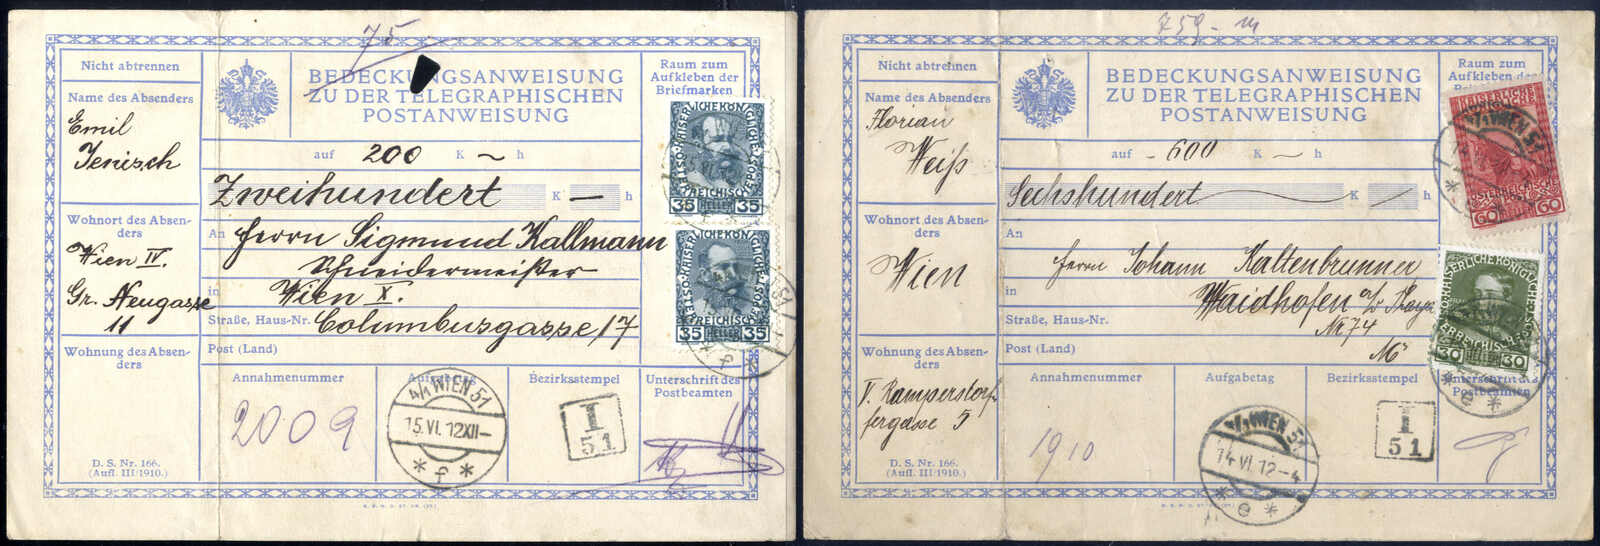 75
Nicht abtrennen
BEDECKUNGSANWEISUNG
ZU DER TELEGRAPHISCHEN
POSTANWEISUNG
Raum zum
Aufkleben der
Briefmarken
Name des Absenders
Emil
Jenisch
auf 200 K — h
Zweihundert K — h
Wohnort des Absen-
ders
Wien IV.
Gr. Neugasse
11
An Herrn Sigmund Kallmann
Schneidermeister
in Wien X.
Straße, Haus-Nr. Columbusgasse 17
Post (Land)
Wohnung des Absen-
ders
Annahmenummer
2009
Bezirksstempel
I
51
Unterschrift des
Postbeamten
4/1 WIEN 51
15.VI.12XII-
* f *
D. S. Nr. 166.
(Aufl. III/1910.)
35 HELLER 35
35 HELLER 35
759
Nicht abtrennen
BEDECKUNGSANWEISUNG
ZU DER TELEGRAPHISCHEN
POSTANWEISUNG
Raum zum
Aufkleben der
Name des Absenders
Florian
Weiß
auf - 600 K — h
Sechshundert K h
Wohnort des Absen-
ders
Wien
An
Herrn Johann Kaltenbrunner
in Waidhofen a/d
Straße, Haus-Nr. Nr 74
Post (Land)
Wohnung des Absen-
ders
V. Ramperstorf-
fergasse 5
Annahmenummer
1910
Aufgabetag
Bezirksstempel
I
51
Unterschrift des
Postbeamten
4/1 WIEN 51
14 VI.12-4
* e *
D. S. Nr. 166.
(Aufl. III/1910.)
60 60
30 30